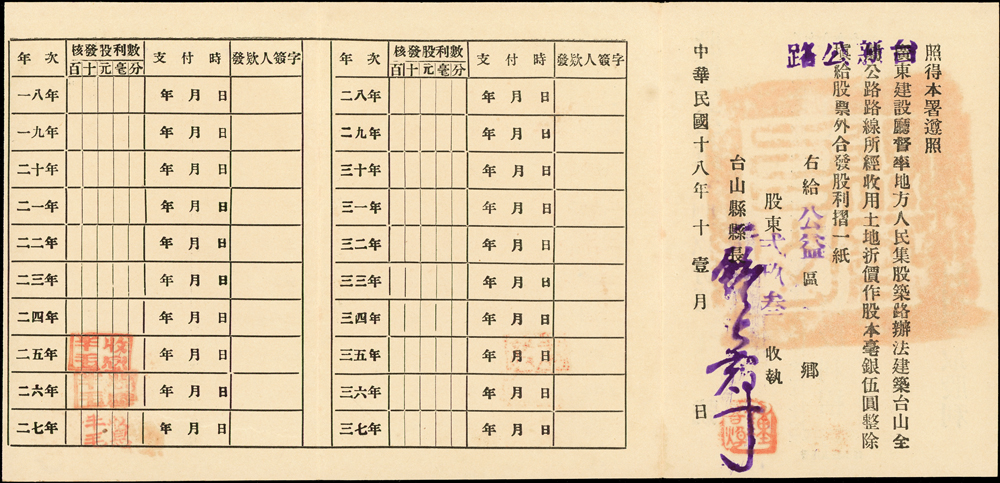 照得本署遵照
廣東建設廳督率地方人民集股築路辦法建築台山全
公路路線所經收用土地折價作股本毫銀伍圓整除
填給股票外合發股利摺一紙
台新公路
右給公益區 鄉
股東弍玖叁 收執
台山縣縣長
中華民國十八年十壹月 日
年次 核發股利數 支付時 發欵人簽字
百十元毫分
二八年 年月日
二九年 年月日
三十年 年月日
三一年 年月日
三二年 年月日
三三年 年月日
三四年 年月日
三五年 年月日
三六年 年月日
三七年 年月日
年次 核發股利數 支付時 發欵人簽字
百十元毫分
一八年 年月日
一九年 年月日
二十年 年月日
二一年 年月日
二二年 年月日
二三年 年月日
二四年 年月日
二五年 年月日
二六年 年月日
二七年 年月日